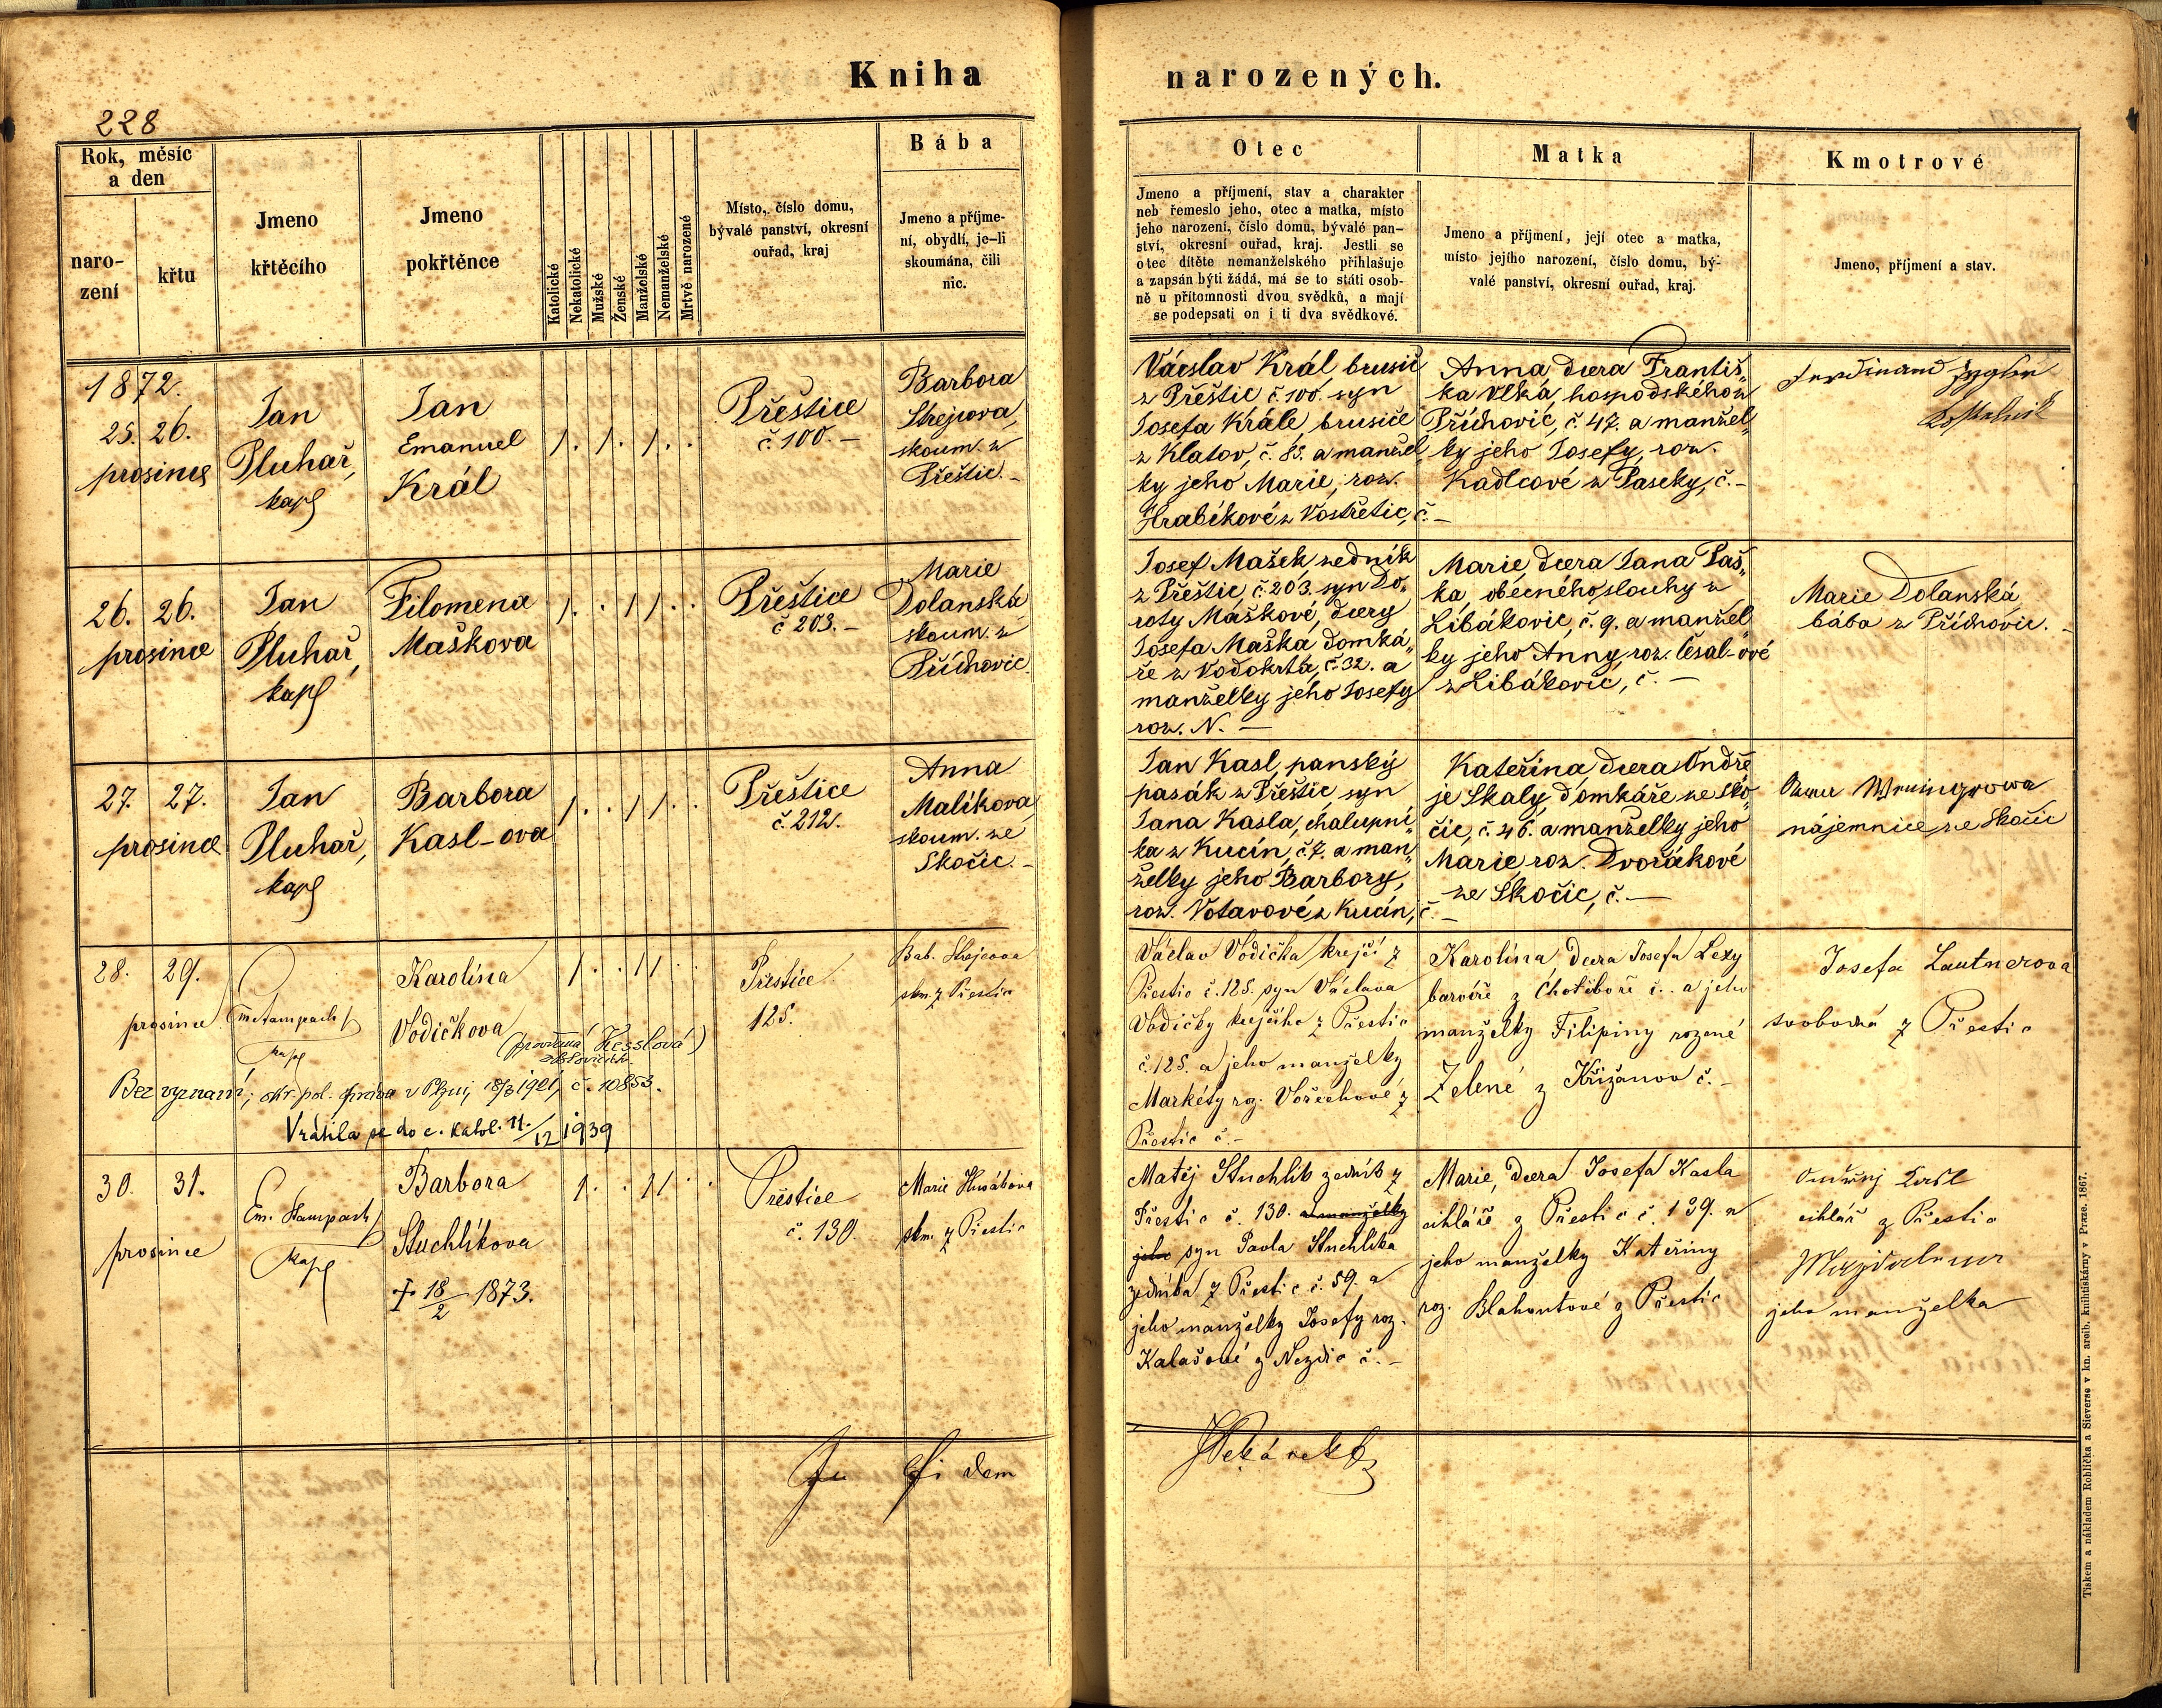 Kniha narozených.
228
Rok, měsíc
a den
naro-
zení
křtu
Jmeno
křtěcího
Jmeno
pokřtěnce
Katolické
Nekatolické
Mužské
Ženské
Manželské
Nemanželské
Mrtvě narozené
Místo, číslo domu,
bývalé panství, okresní
ouřad, kraj
Bába
Jmeno a příjme-
ní, obydlí, je-li
skoumána, čili
nic.
Otec
Jmeno a příjmení, stav a charakter
neb řemeslo jeho, otec a matka, místo
jeho narození, číslo domu, bývalé pan-
ství, okresní ouřad, kraj. Jestli se
otec dítěte nemanželského přihlašuje
a zapsán býti žádá, má se to státi osob-
ně u přítomnosti dvou svědků, a mají
se podepsati on i ti dva svědkové.
Matka
Jmeno a příjmení, její otec a matka,
místo jejího narození, číslo domu, bý-
valé panství, okresní ouřad, kraj.
Kmotrové
Jmeno, příjmení a stav.
1872.
25. 26.
prosince
Jan
Pluhař,
kapl
Jan
Emanuel
Král
1. 1. 1. .
Přeštice
č. 100. –
Barbora
Strejcova,
skoum. z
Přeštic. –
Václav Král, brusič
z Přeštic č. 100. syn
Josefa Krále, brusiče
z Klatov, č. 85. a manžel„
ky jeho Marie, roz.
Hrabíkové z Vostřetic, č. –
Anna dcera Františ„
ka Vlká, hospodského z
Příchovic, č. 47. a manžel„
ky jeho Josefy, roz.
Kadlcové z Paseky, č. –
Ferdinand
26. 26.
prosince
Jan
Pluhař,
kapl
Filomena
Maškova
1. . 1 1 . .
Přeštice
č 203. –
Marie
Dolanská
skoum. z
Příchovic.
Josef Mašek, zedník
z Přeštic, č. 203. syn Do„
roty Maškové, dcery
Josefa Maška domká„
ře z Vodokrta, č. 32. a
manželky jeho Josefy
roz. N. –
Marie dcera Jana Paš„
ka obecného slouhy z
Libákovic, č. 9. a manžel„
ky jeho Anny, roz. Česal-ové
z Libákovic, č. –
Marie Dolanská,
bába z Příchovic. –
27. 27.
prosince
Jan
Pluhař,
kapl
Barbora
Kasl-ova
1. . 1 1 . .
Přeštice
č. 212.
Anna
Malíkova,
skoum. ze
Skočic. –
Jan Kasl, panský
pasák z Přeštic, syn
Jana Kasla, chalupní„
ka z Kucín, č. 7. a man„
želky jeho Barbory,
roz. Votavové z Kucín, č. –
Kateřina dcera Ondře
je Skaly, domkáře ze Sko„
čic, č. 46. a manželky jeho
Marie, roz. Dvořákové
ze Skočic, č. –
nájemnice ze Skočic
28. 29.
prosince
Em. Stampach
kapl
Karolína
Vodičkova
(provdaná Kesslová)
1. . 1 1 . .
Přeštice
125.
Bab. Strejcova
skm. z Přeštic
Václav Vodička krejčí z
Přeštic č. 125. syn Václava
Vodičky krejčího z Přeštic
č. 125. a jeho manželky
Markéty roz. Vořechové z
Přeštic č. –
Karolína dcera Josefa Lexy
barvíře z Chotiboře č. . a jeho
manželky Filipiny rozené
Zelené z Křižanov č. –
Josefa Lautnerova
svobodná z Přeštic
Bez vyznání; okr. pol. správa v Plzni, 18/3 1921, č. 10853.
Vrátila se do c. katol. 11./12 1939
30. 31.
prosince
Em. Stampach
kapl
Barbora
Stuchlíkova
† 18/2 1873.
1. . 1 1 . .
Přeštice
č. 130.
Marie
skm. z Přeštic
Matěj Stuchlík zedník z
Přeštic č. 130. a manželky
jeho syn Pavla Stuchlíka
zedníka z Přeštic č. 59. a
jeho manželky Josefy roz.
Kalašové z Nezdic č. –
Marie, dcera Josefa Kasla
cihláře z Přeštic č. 139. a
jeho manželky Kateřiny
roz. Blahoutové z Přeštic
Ondřej Kasl
cihlář z Přeštic
Magdalena
jeho manželka
In fi dem
Tiskem a nákladem Roblička a Sieverse v kn. arcib. knihtiskárny v Praze. 1867.